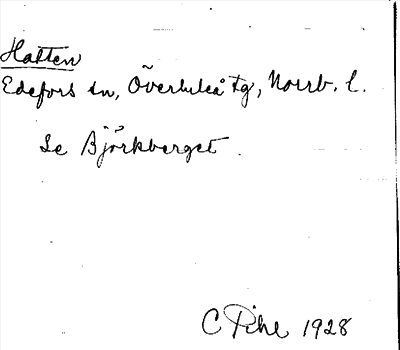 Hatten
Edefors sn, Överluleå tg, Norrb. l.
Se Björkberget.
C Pihl 1928